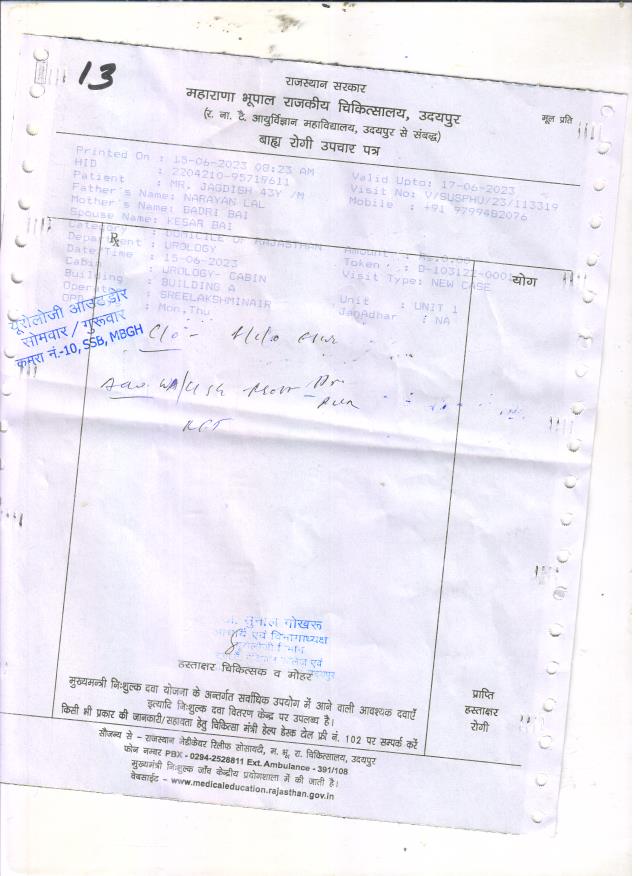 13
राजस्थान सरकार
महाराणा भूपाल राजकीय चिकित्सालय, उदयपुर
मूल प्रति
(र. ना. टै. आयुर्विज्ञान महाविद्यालय, उदयपुर से संबद्ध)
बाह्य रोगी उपचार पत्र
Printed On : 15-06-2023 08:23 AM Valid Upto: 17-06-2023
HID : 2204210-95719611 Visit No: V/SUSPHU/23/113319
Patient : MR. JAGDISH 43Y /M Mobile : +91 9799482076
Father's Name: NARAYAN LAL
Mother's Name: BADRI BAI
Spouse Name: KESAR BAI
Category : DOMICILE OF RAJASTHAN Amount : Rs.0.00
Department : UROLOGY Token : D-103122-0001
Date/Time : 15-06-2023 Visit Type: NEW CASE
Cabin : UROLOGY- CABIN
Building : BUILDING A Unit : UNIT 1
Operator : SREELAKSHMINAIR JanAdhar : NA
OPD : Mon,Thu
℞
योग
यूरोलोजी आउटडोर
सोमवार / गुरूवार
कमरा नं.-10, SSB, MBGH
C/o -
RFT
आचार्य एवं विभागाध्यक्ष
हस्ताक्षर चिकित्सक व मोहर
मुख्यमन्त्री निःशुल्क दवा योजना के अन्तर्गत सर्वाधिक उपयोग में आने वाली आवश्यक दवाएँ
इत्यादि निःशुल्क दवा वितरण केन्द्र पर उपलब्ध है।
किसी भी प्रकार की जानकारी/सहायता हेतु चिकित्सा मंत्री हेल्प डेस्क टोल फ्री नं. 102 पर सम्पर्क करें
प्राप्ति
हस्ताक्षर
रोगी
सौजन्य से – राजस्थान मेडीकेयर रिलीफ सोसायटी, म. भू. रा. चिकित्सालय, उदयपुर
फोन नम्बर PBX - 0294-2528811 Ext. Ambulance - 391/108
मुख्यमंत्री निःशुल्क जाँच केन्द्रीय प्रयोगशाला में की जाती है।
वेबसाईट – www.medicaleducation.rajasthan.gov.in